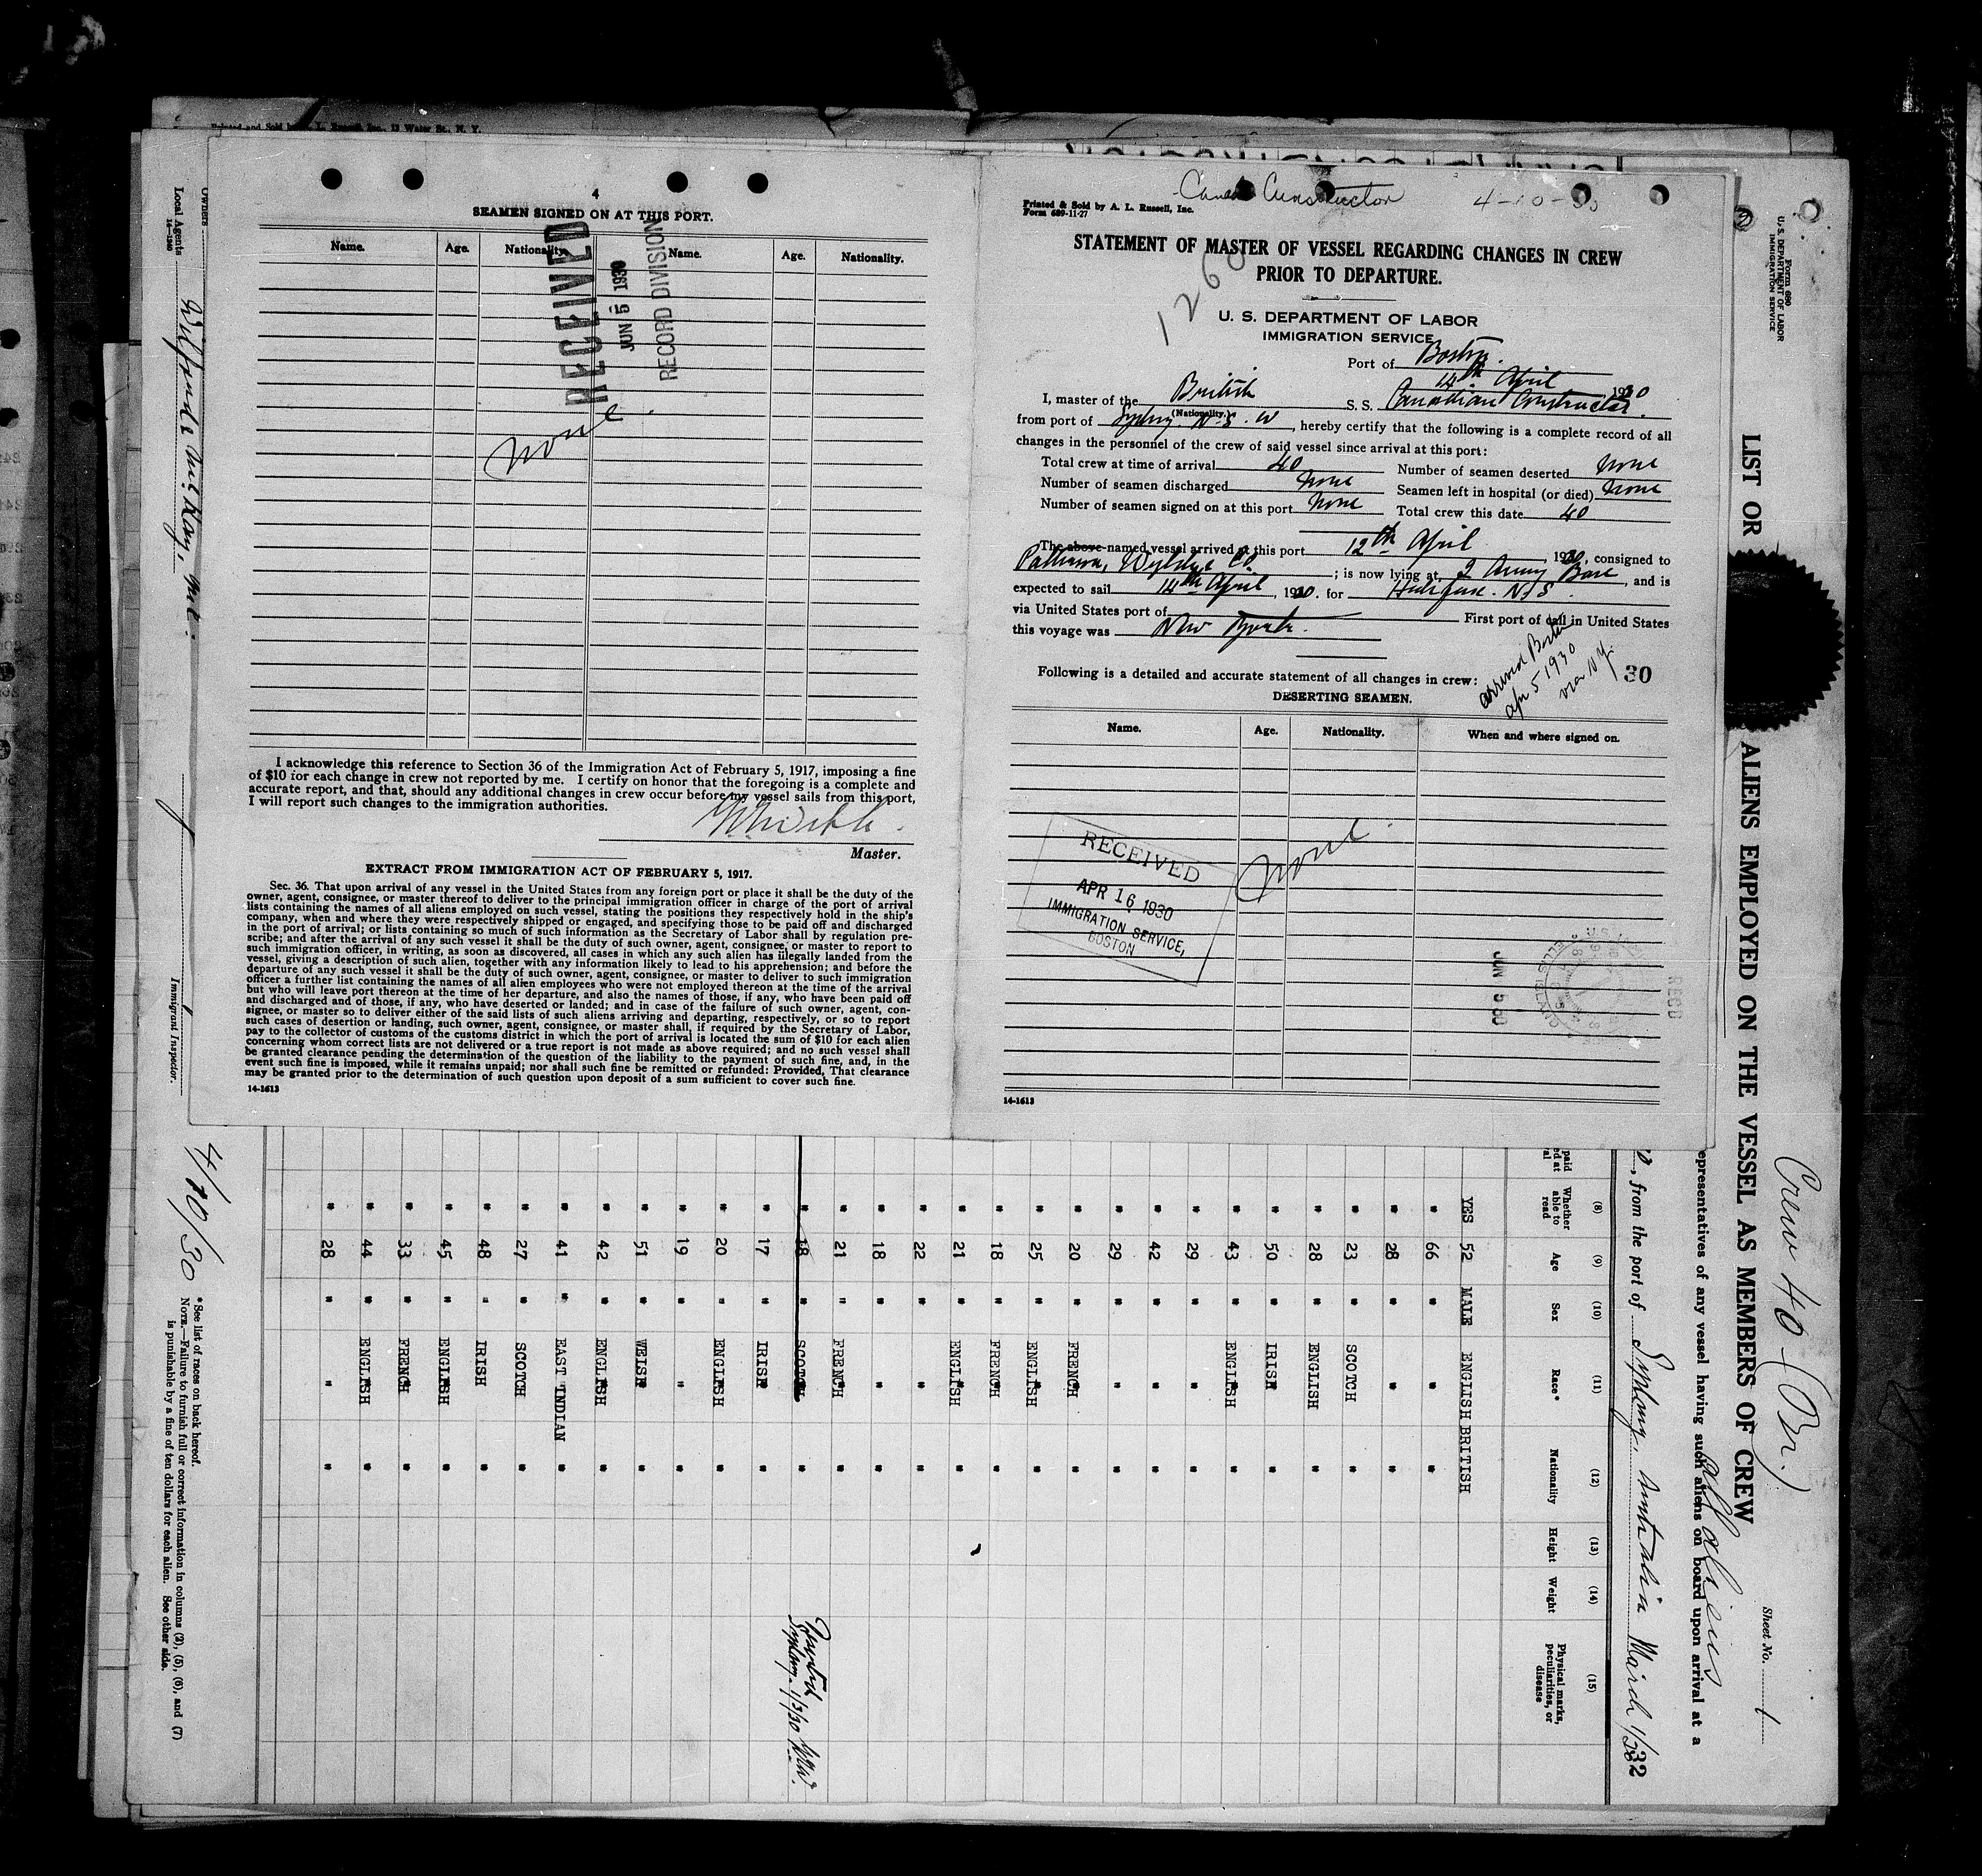 Printed and Sold by A. L. Russell Inc., 12 Water St., N. Y.
4
SEAMEN SIGNED ON AT THIS PORT.
Name. Age. Nationality. Name. Age. Nationality.
RECEIVED
JUN 5 1930
RECORD DIVISION
None
I acknowledge this reference to Section 36 of the Immigration Act of February 5, 1917, imposing a fine
of $10 for each change in crew not reported by me. I certify on honor that the foregoing is a complete and
accurate report, and that, should any additional changes in crew occur before my vessel sails from this port,
I will report such changes to the immigration authorities.
Master.
EXTRACT FROM IMMIGRATION ACT OF FEBRUARY 5, 1917.
Sec. 36. That upon arrival of any vessel in the United States from any foreign port or place it shall be the duty of the
owner, agent, consignee, or master thereof to deliver to the principal immigration officer in charge of the port of arrival
lists containing the names of all aliens employed on such vessel, stating the positions they respectively hold in the ship's
company, when and where they were respectively shipped or engaged, and specifying those to be paid off and discharged
in the port of arrival; or lists containing so much of such information as the Secretary of Labor shall by regulation pre-
scribe; and after the arrival of any such vessel it shall be the duty of such owner, agent, consignee, or master to report to
such immigration officer, in writing, as soon as discovered, all cases in which any such alien has illegally landed from the
vessel, giving a description of such alien, together with any information likely to lead to his apprehension; and before the
departure of any such vessel it shall be the duty of such owner, agent, consignee, or master to deliver to such immigration
officer a further list containing the names of all alien employees who were not employed thereon at the time of the arrival
but who will leave port thereon at the time of her departure, and also the names of those, if any, who have been paid off
and discharged and of those, if any, who have deserted or landed; and in case of the failure of such owner, agent, con-
signee, or master so to deliver either of the said lists of such aliens arriving and departing, respectively, or so to report
such cases of desertion or landing, such owner, agent, consignee, or master shall, if required by the Secretary of Labor,
pay to the collector of customs of the customs district in which the port of arrival is located the sum of $10 for each alien
concerning whom correct lists are not delivered or a true report is not made as above required; and no such vessel shall
be granted clearance pending the determination of the question of the liability to the payment of such fine, and, in the
event such fine is imposed, while it remains unpaid; nor shall such fine be remitted or refunded: Provided, That clearance
may be granted prior to the determination of such question upon deposit of a sum sufficient to cover such fine.
14-1613
Constructor 4-10-30
Printed & Sold by A. L. Russell, Inc.
Form 689-11-27
STATEMENT OF MASTER OF VESSEL REGARDING CHANGES IN CREW
PRIOR TO DEPARTURE.
1260
U. S. DEPARTMENT OF LABOR
IMMIGRATION SERVICE
Port of Boston.
14th April 1930
I, master of the British S. S. Canadian Constructor.
(Nationality.)
from port of Sydney. N. S. W, hereby certify that the following is a complete record of all
changes in the personnel of the crew of said vessel since arrival at this port:
Total crew at time of arrival 40 Number of seamen deserted None
Number of seamen discharged None Seamen left in hospital (or died) None
Number of seamen signed on at this port None Total crew this date 40
The above-named vessel arrived at this port 12th April, 1930, consigned to
Wylde & Co. ; is now lying at 2 Army Base, and is
expected to sail 14th April, 1930. for Halifax. N.S.
via United States port of First port of call in United States
this voyage was New York.
arrived Boston
Apr 5 1930
via N Y.
30
Following is a detailed and accurate statement of all changes in crew:
DESERTING SEAMEN.
Name. Age. Nationality. When and where signed on.
None
RECEIVED
APR 16 1930
IMMIGRATION SERVICE,
BOSTON
JUN 5 30
REC'D
14-1613
Owners
Local Agents
14-1240
Immigrant Inspector.
4/10/30
2
Form 680
U. S. DEPARTMENT OF LABOR
IMMIGRATION SERVICE
LIST OR
ALIENS EMPLOYED ON THE VESSEL AS MEMBERS OF CREW
Crew 40 (Br.)
all aliens
Sheet No. 1
epresentatives of any vessel having such aliens on board upon arrival at a
, from the port of Sydney, Australia March 1/30
32
(8) (9) (10) (11) (12) (13) (14) (15)
paid
ed at
al
Whether able to read Age Sex Race* Nationality Height Weight Physical marks, peculiarities, or disease
YES 52 MALE ENGLISH BRITISH
" 66 " " "
" 28 " " "
" 23 " SCOTCH "
" 28 " ENGLISH "
" 50 " IRISH "
" 43 " ENGLISH "
" 29 " " "
" 42 " " "
" 29 " " "
" 20 " FRENCH "
" 25 " ENGLISH "
" 18 " FRENCH "
" 21 " ENGLISH "
" 22 " " "
" 18 " " "
" 21 " FRENCH "
" 18 " SCOTCH " Sydney 1/3/30
" 17 " IRISH "
" 20 " ENGLISH "
" 19 " " "
" 51 " WELSH "
" 42 " ENGLISH "
" 41 " EAST INDIAN "
" 27 " SCOTCH "
" 48 " IRISH "
" 45 " ENGLISH "
" 33 " FRENCH "
" 44 " ENGLISH "
" 28 " " "
* See list of races on back hereof.
NOTE.—Failure to furnish full or correct information in columns (2), (5), (6), and (7)
is punishable by a fine of ten dollars for each alien. See other side.